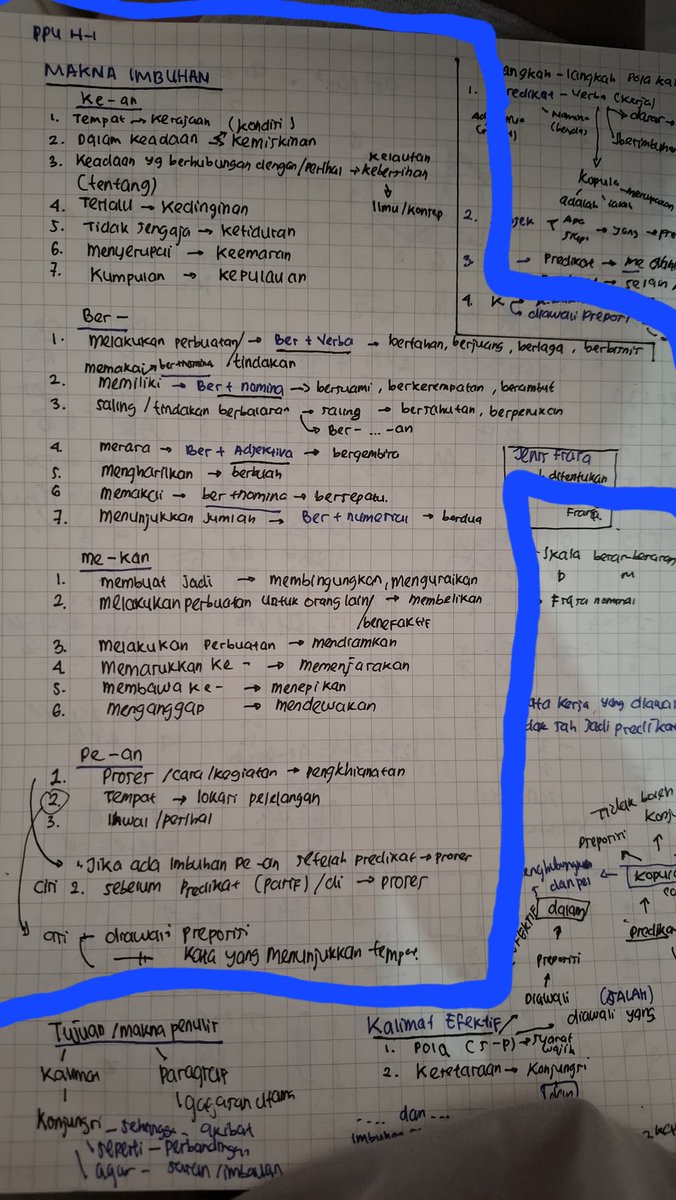 PPU H-1
MAKNA IMBUHAN
Ke-an
1. Tempat → Kerajaan
2. Dalam keadaan (kondisi) → Kemiskinan
3. Keadaan yg berhubungan dengan/perihal → kebersihan
(tentang)
kelautan
Ilmu/konsep
4. Terlalu → Kedinginan
5. Tidak sengaja → ketiduran
6. menyerupai → Keemasan
7. Kumpulan → kepulauan
Ber-
1. melakukan perbuatan/ → Ber + Verba → bertahan, berjuang, berlaga, berbisnis
memakai → ber+nomina /tindakan
2. memiliki → Ber + nomina → bersuami, berkesempatan, berambut
3. saling /tindakan berbalasan → saling → bersahutan, berpelukan
→ Ber- ... -an
4. merasa → Ber + Adjektiva → bergembira
5. menghasilkan → berbuah
6 memakai → ber+nomina → bersepatu.
7. menunjukkan jumlah → Ber + numeral → berdua
me-kan
1. membuat jadi → membingungkan, menguraikan
2. melakukan perbuatan untuk orang lain/ → membelikan
/benefaktif
3. melakukan perbuatan →
4. Memasukkan ke - → memenjarakan
5. membawa ke - → menepikan
6. menganggap → mendewakan
Pe-an
1. Proses /cara/kegiatan → pengkhianatan
2. Tempat → lokasi pelelangan
3. Ihwal /perihal
Jika ada imbuhan pe-an setelah predikat → proses
Ciri 2. sebelum predikat (pasif) /di → proses
Ciri diawali preposisi
kata yang menunjukkan tempat.
Langkah-langkah Pola Kal
1. Predikat - Verba (kerja)
Nomina (benda)
dasar →
berimbuhan
Kopula → merupakan
adalah ialah
2. Apa
Siapa → yang → pre
3. → Predikat → me
→ selain
4. K
diawali preposi
Jenis Frasa
ditentukan
Frasa.
- Skala besar-besaran
D M
Frasa nominal
kata kerja yang diawal
dak sah jadi predikat
Tidak boleh
konju
preposisi
menghubungkan
dan pel
Kopula
EFEKTIF
dalam
Predika
Preposisi
Diawali (SALAH)
diawali yang
Tujuan /makna penulis
Kalimat
Paragraf
gagasan utama
Konjungsi - sehingga - akibat
seperti - perbandingan
agar - saran /imbauan
Kalimat Efektif
1. Pola (S-P) → syarat wajib
2. Kesetaraan → Konjungsi
dan
.... dan ...
Imbuhan